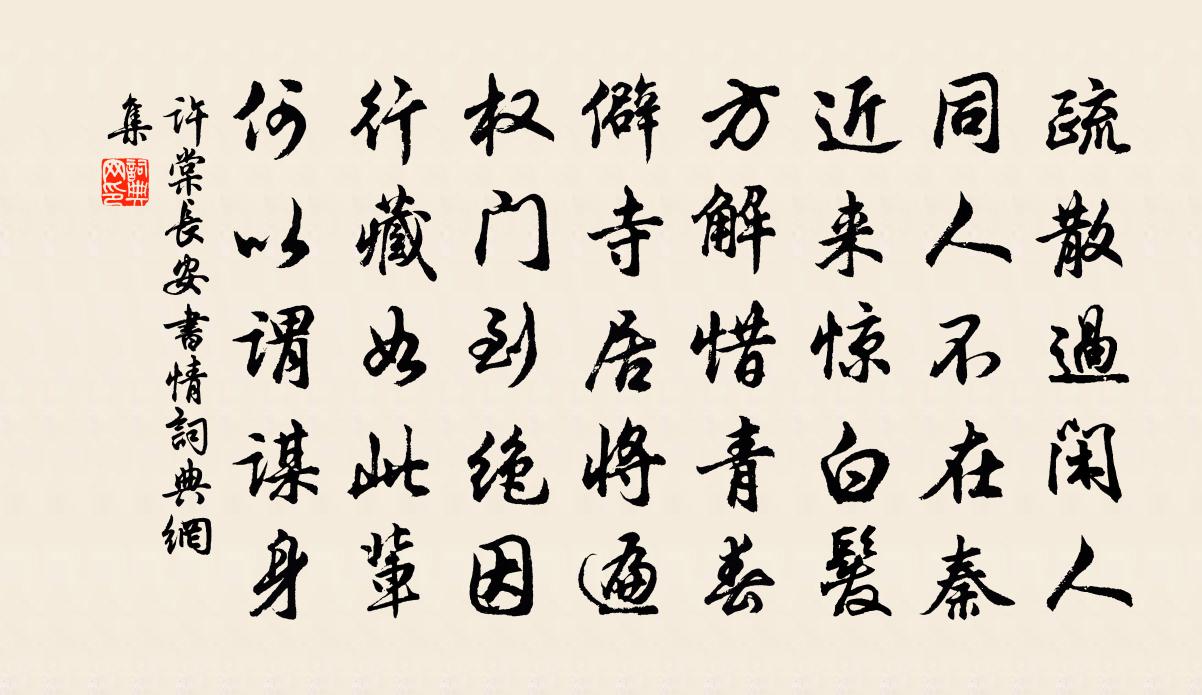 疏散過闲人
同人不在秦
近来惊白髮
方解惜青春
僻寺居将遍
权门到绝因
行藏如此輩
何以谓谋身
许棠長安書情詞典網
集
詞典
网印